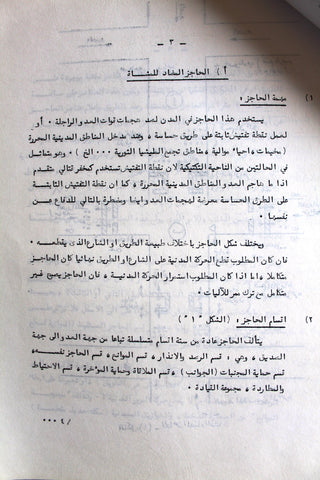 - ٣ -
أ) الحاجز المضاد للمشاة
١) مهمة الحاجز :
يستخدم هذا الحاجز في المدن لصد هجمات قوات العدو الراجلة ٠ أو
لعمل نقطة تفتيش ثابتة على طريق حساسة ٠ وعند مدخل المناطق المدينية المحررة
( مخيمات ٠ احياء موالية ٠ مناطق تجمع الطليشيا الثورية ٠٠٠٠ الخ ) ٠ وهو متماثل
في الحالتين من الناحية التكتيكية لان نقطة التفتيش تستخدم كمخفر قتالي متقدم
اذا ما هاجم العدو المناطق المدينية المحررة ٠ كما ان نقطة التفتيش الثابتة
على الطرق الحساسة معرضة لهجمات العدو ايضا ومضطرة بالتالي للدفاع عن
نفسها ٠
ويختلف شكل الحاجز باختلاف طبيعة الطريق او الشارع الذي يقطعه ٠
فان كان المطلوب قطع الحركة المدنية على الشارع او الطريق نهائيا كان الحاجز
متكاملا ٠ اما اذا كان المطلوب استمرار الحركة المدنية ٠ فان الحاجز يصبح غير
متكامل مع ترك ممر للآليات ٠
٢) اقسام الحاجز : ( الشكل " ١ " )
يتألف الحاجز عادة من ستة اقسام متسلسلة تباعا من جهة العدو الى جهة
الصديق ٠ وهي : قسم الرصد والانذار ٠ قسم الموانع ٠ قسم الحاجز نفسه ٠
قسم حماية المجنبات ( الجوانب ) ٠ قسم الملاقاة وحماية المؤخرة ٠ قسم الاحتياط
والمطاردة ٠ مجموعة القيادة ٠
٠٠٠ ٤ /